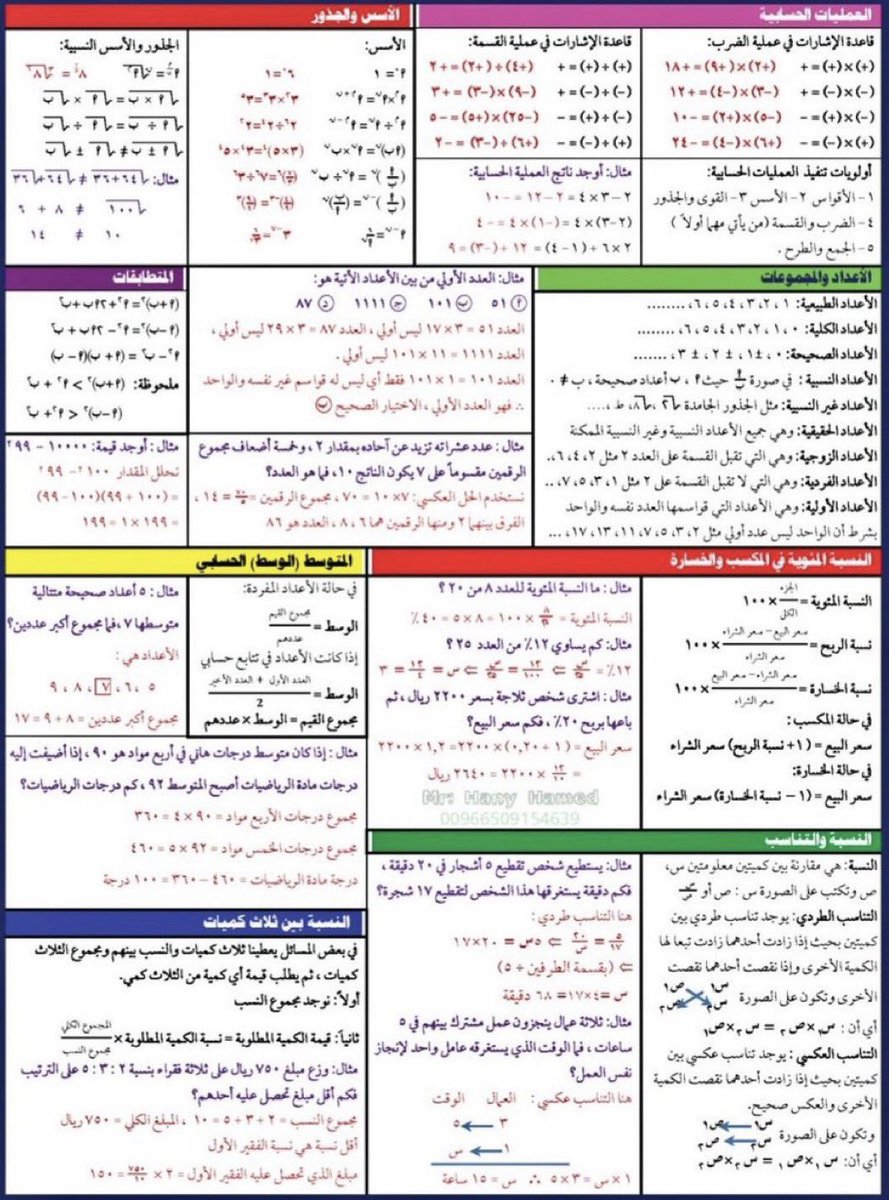 العمليات الحسابية
قاعدة الإشارات في عملية الضرب:
(+)×(+)= + (+٢)×(+٩)=+١٨
(-)×(-)= + (-٣)×(-٤)=+١٢
(-)×(+)= - (-٥)×(+٢)=-١٠
(+)×(-)= - (+٦)×(-٤)=-٢٤
قاعدة الإشارات في عملية القسمة:
(+)÷(+)= + (+٤)÷(+٢)=+٢
(-)÷(-)= + (-٩)×(-٣)=+٣
(-)÷(+)= - (-٢٥)×(+٥)=-٥
(+)÷(-)= - (+٦)÷(-٣)=-٢
أولويات تنفيذ العمليات الحسابية:
١- الأقواس ٢- الأسس ٣- القوى والجذور
٤- الضرب والقسمة (من يأتي مهما أولاً)
٥- الجمع والطرح.
مثال: أوجد ناتج العملية الحسابية:
٢-٣×٤ = ٢-١٢ = -١٠
(٢-٣)×٤ = (-١)×٤ = -٤
٢×٦+(١-٤) = ١٢+(-٣) = ٩
الأسس والجذور
الأسس:
الجذور والأسس النسبية:
مثال: √٣٦+٦٤ ≠ √٣٦+√٦٤
√١٠٠ ≠ ٨ + ٦
١٠ ≠ ١٤
الأعداد والمجموعات
الأعداد الطبيعية: ١، ٢، ٣، ٤، ٥، ٦، ........
الأعداد الكلية: ٠، ١، ٢، ٣، ٤، ٥، ٦، ........
الأعداد الصحيحة: ٠، ±١، ±٢، ±٣، ........
الأعداد النسبية: في صورة أ/ب حيث أ، ب أعداد صحيحة، ب ≠ ٠
الأعداد غير النسبية: مثل الجذور الجامدة √٢، √٨، ط، ....
الأعداد الحقيقية: وهي جميع الأعداد النسبية وغير النسبية الممكنة
الأعداد الزوجية: وهي التي تقبل القسمة على العدد ٢ مثل ٢، ٤، ٦،..
الأعداد الفردية: وهي التي لا تقبل القسمة على ٢ مثل ١، ٣، ٥، ٧،..
الأعداد الأولية: وهي الأعداد التي قواسمها العدد نفسه والواحد
بشرط أن الواحد ليس عدد أولي مثل ٢، ٣، ٥، ٧، ١١، ١٣، ١٧، ...
مثال: العدد الأولي من بين الأعداد الآتية هو:
أ ٥١ ب ١٠١ ج ١١١١ د ٨٧
العدد ٥١ = ٣×١٧ ليس أولي، العدد ٨٧ = ٣×٢٩ ليس أولي،
العدد ١١١١ = ١١×١٠١ ليس أولي.
العدد ١٠١ = ١×١٠١ فقط أي ليس له قواسم غير نفسه والواحد
∴ فهو العدد الأولي، الاختيار الصحيح ب
مثال: عدد عشراته تزيد عن آحاده بمقدار ٢، وخمسة أضعاف مجموع
الرقمين مقسوماً على ٧ يكون الناتج ١٠، فما هو العدد؟
نستخدم الحل العكسي: ٧×١٠ = ٧٠، مجموع الرقمين = ٧٠/٥ = ١٤،
الفرق بينهما ٢ ومنها الرقمين هما ٦، ٨، العدد هو ٨٦
المتطابقات
(أ+ب)² = أ²+٢أب+ب²
(أ-ب)² = أ²-٢أب+ب²
أ²-ب² = (أ+ب)(أ-ب)
ملحوظة: (أ+ب)² > أ²+ب²
(أ-ب)² < أ²+ب²
مثال: أوجد قيمة: ١٠٠٠٠ - ٩٩²
نحلل المقدار ١٠٠² - ٩٩²
= (١٠٠+٩٩)(١٠٠-٩٩)
= ١٩٩×١ = ١٩٩
النسبة المئوية في المكسب والخسارة
النسبة المئوية = الجزء/الكلي ×١٠٠
نسبة الربح = سعر البيع-سعر الشراء/سعر الشراء ×١٠٠
نسبة الخسارة = سعر الشراء-سعر البيع/سعر الشراء ×١٠٠
في حالة المكسب:
سعر البيع = (١+ نسبة الربح) سعر الشراء
في حالة الخسارة:
سعر البيع = (١- نسبة الخسارة) سعر الشراء
مثال: ما النسبة المئوية للعدد ٨ من ٢٠ ؟
النسبة المئوية = ٨/٢٠ ×١٠٠ = ٨×٥ = ٤٠٪
مثال: كم يساوي ١٢٪ من العدد ٢٥ ؟
١٢٪ = س/٢٥ ⇐ ١٢/١٠٠ = س/٢٥ ⇐ س = ١٢/٤ = ٣
مثال: اشترى شخص ثلاجة بسعر ٢٢٠٠ ريال، ثم
باعها بربح ٢٠٪، فكم سعر البيع؟
سعر البيع = (١+٠,٢٠)×٢٢٠٠=١,٢×٢٢٠٠
= ١٢/١٠ ×٢٢٠٠ = ٢٦٤٠ ريال
Mr: Hany Hamed
00966509154639
المتوسط (الوسط) الحسابي
في حالة الأعداد المفردة:
الوسط = مجموع القيم/عددهم
إذا كانت الأعداد في تتابع حسابي
الوسط = العدد الأول + العدد الأخير/2
مجموع القيم = الوسط×عددهم
مثال: ٥ أعداد صحيحة متتالية
متوسطها ٧، فما مجموع أكبر عددين؟
الأعداد هي:
٥، ٦، ٧، ٨، ٩
مجموع أكبر عددين = ٨+٩ = ١٧
مثال: إذا كان متوسط درجات هاني في أربع مواد هو ٩٠، إذا أضيفت إليه
درجات مادة الرياضيات أصبح المتوسط ٩٢، كم درجات الرياضيات؟
مجموع درجات الأربع مواد = ٩٠×٤ = ٣٦٠
مجموع درجات الخمس مواد = ٩٢×٥ = ٤٦٠
درجة مادة الرياضيات = ٤٦٠-٣٦٠ = ١٠٠ درجة
النسبة والتناسب
النسبة: هي مقارنة بين كميتين معلومتين س،
ص وتكتب على الصورة س : ص أو س/ص
التناسب الطردي: يوجد تناسب طردي بين
كميتين بحيث إذا زادت أحدهما زادت تبعا لها
الكمية الأخرى وإذا نقصت أحدهما نقصت
الأخرى وتكون على الصورة س١ ص١ س٢ ص٢
أي أن : س١×ص٢ = س٢×ص١
التناسب العكسي : يوجد تناسب عكسي بين
كميتين بحيث إذا زادت أحدهما نقصت الكمية
الأخرى والعكس صحيح.
وتكون على الصورة س١ ص١ س٢ ص٢
أي أن : س١×ص١ = س٢×ص٢
مثال: يستطيع شخص تقطيع ٥ أشجار في ٢٠ دقيقة،
فكم دقيقة يستغرقها هذا الشخص لتقطيع ١٧ شجرة؟
هنا التناسب طردي :
٥/١٧ = ٢٠/س ⇐ ٥س = ٢٠×١٧
⇐ (بقسمة الطرفين ÷ ٥)
س = ٤×١٧= ٦٨ دقيقة
مثال: ثلاثة عمال ينجزون عمل مشترك بينهم في ٥
ساعات، فما الوقت الذي يستغرقه عامل واحد لإنجاز
نفس العمل؟
هنا التناسب عكسي : العمال الوقت
٣ ٥
١ س
١×س = ٣×٥ ∴ س = ١٥ ساعة
النسبة بين ثلاث كميات
في بعض المسائل يعطينا ثلاث كميات والنسب بينهم ومجموع الثلاث
كميات، ثم يطلب قيمة أي كمية من الثلاث كمي.
أولاً: نوجد مجموع النسب
ثانياً: قيمة الكمية المطلوبة = نسبة الكمية المطلوبة× المجموع الكلي/مجموع النسب
مثال: وزع مبلغ ٧٥٠ ريال على ثلاثة فقراء بنسبة ٢ : ٣ : ٥ على الترتيب
فكم أقل مبلغ تحصل عليه أحدهم؟
مجموع النسب = ٢+٣+٥ = ١٠، المبلغ الكلي = ٧٥٠ ريال
أقل نسبة هي نسبة الفقير الأول
مبلغ الذي تحصل عليه الفقير الأول = ٢× ٧٥٠/١٠ = ١٥٠